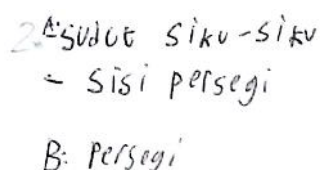 2. A: sudut siku-siku
- sisi persegi
B: persegi